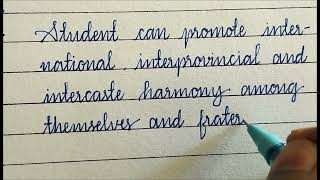 Student can promote inter-
national, interprovincial and
intercaste harmony among
themselves and frater